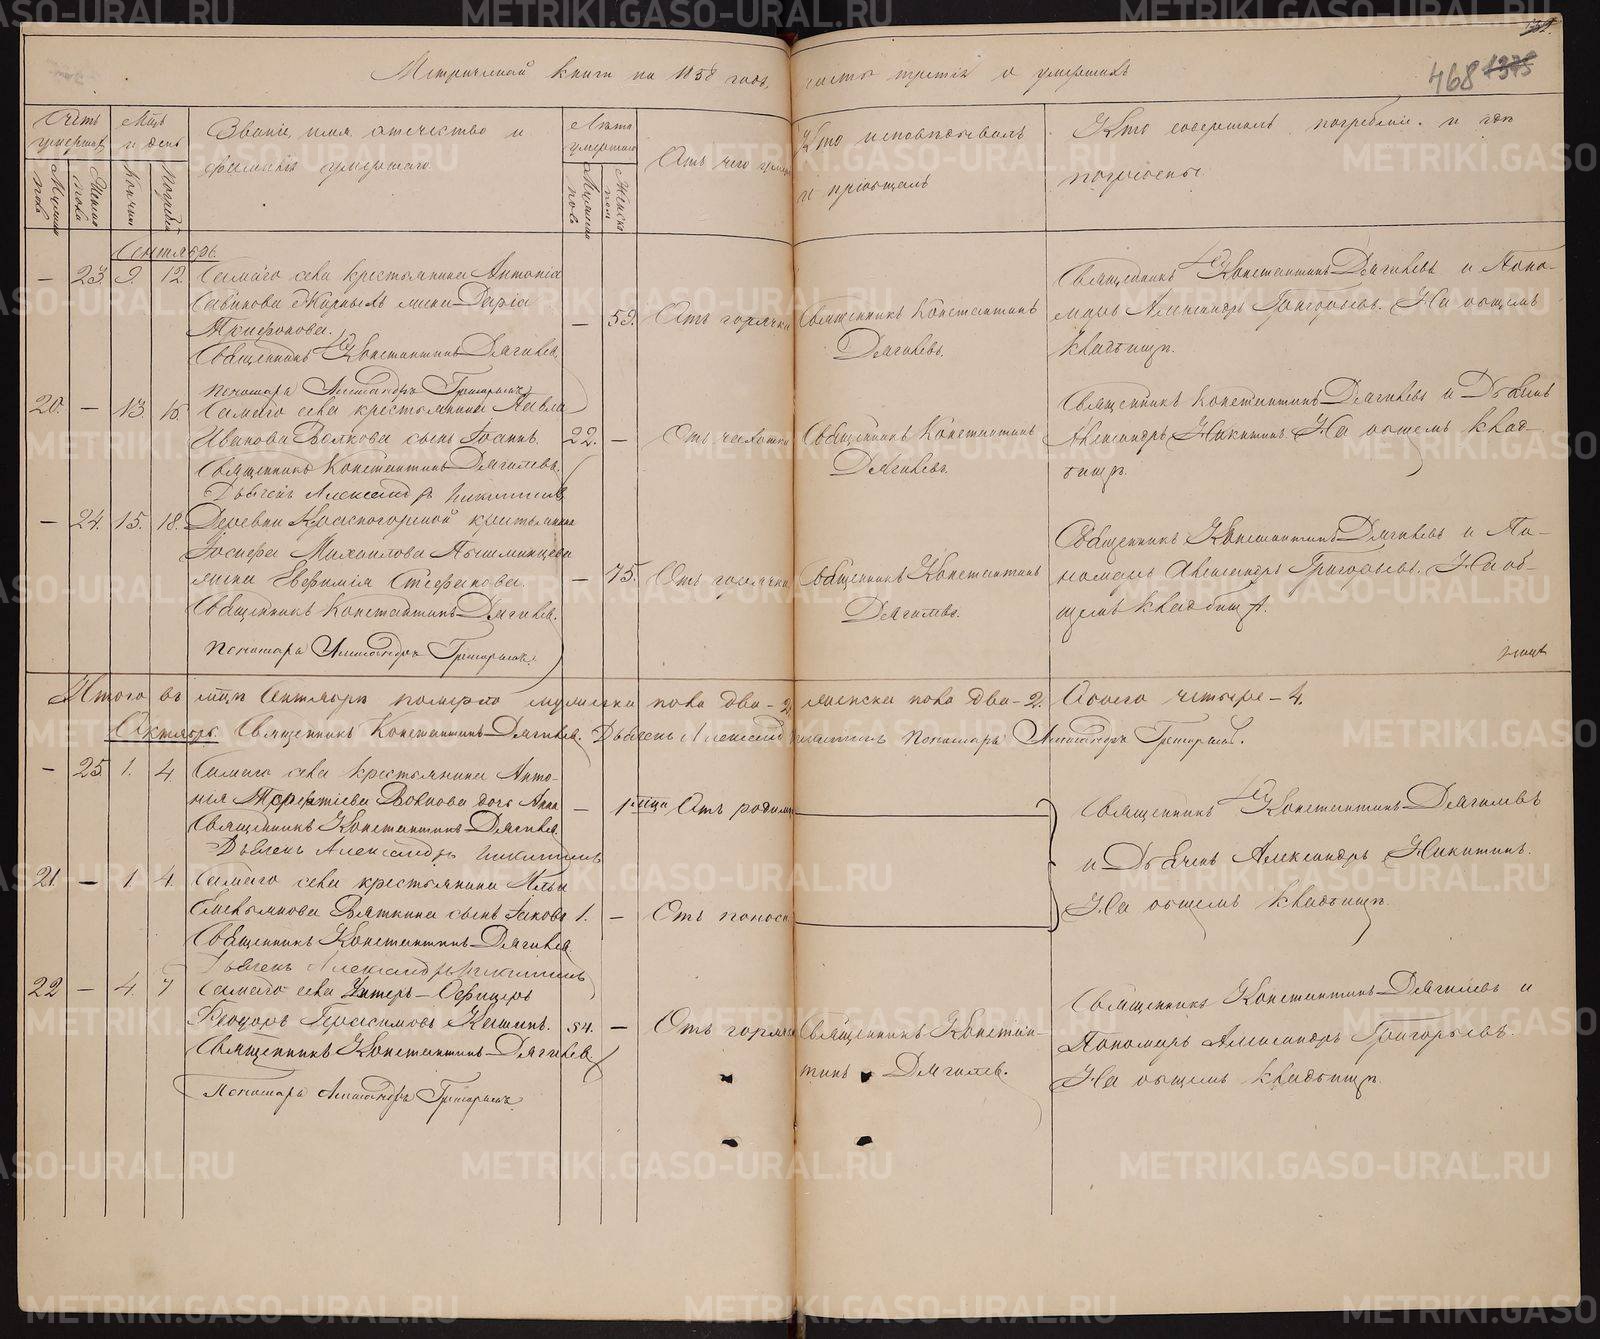 Метрической книги на 1858 годъ, часть третія о умершихъ
468 1375
Счетъ умершихъ
Мужеска пола
Женска пола
Мѣць и день
Кончин
Погребен
Званіе, имя, отечество и фамилія умершаго.
Лѣта умершаго
Мужеска пола
Женска пол
Отъ чего умеръ
Кто исповѣдывалъ и пріобщалъ
Кто совершалъ погребеніе и гдѣ погребены.
Сентябрь.
— 23. 9. 12. Самаго села крестьянина Антонія
Савинова жена Дарія
— 53. Отъ горячки
Священникъ Константинъ Дягилевъ.
Священникъ Константинъ Дягилевъ и Поно-
марь Александръ Григорьевъ. На общемъ
кладбищѣ.
Священникъ Константинъ Дягилевъ.
Пономарь Александръ Григорьевъ
20. — 13. 16. Самаго села крестьянина Павла
Иванова Волкова сынъ Іоаннъ. 22. — Отъ чахотки
Священникъ Константинъ
Дягилевъ.
Священникъ Константинъ Дягилевъ и Дьячекъ
Александръ Никитинъ. На общемъ клад-
бищѣ.
Священникъ Константинъ Дягилевъ.
Дьячекъ Александръ Никитинъ
— 24. 15. 18. Деревни Красногорской крестьянина
Іосифа Михаилова Пышминцева
жена Евфимія Стефанова. — 75. Отъ горячки
Священникъ Константинъ
Дягилевъ.
Священникъ Константинъ Дягилевъ и По-
номарь Александръ Григорьевъ. На об-
щемъ кладбищѣ.
Священникъ Константинъ Дягилевъ.
Пономарь Александръ Григорьевъ.
Итого въ мѣцѣ Сентябрѣ померло мужеска пола два - 2, женска пола два - 2. Обоего четыре - 4.
Октябрь. Священникъ Константинъ Дягилевъ. Дьячекъ Александръ Никитинъ Пономарь Александръ Григорьевъ.
— 25. 1. 4. Самаго села крестьянина Анто-
нія Волкова дочь Анна — 1 мѣца Отъ родимц
Священникъ Константинъ Дягилевъ
Дьячекъ Александръ Никитинъ
Священникъ Константинъ Дягилевъ
и Дьячекъ Александръ Никитинъ.
На общемъ кладбищѣ.
21. — 1. 4. Самаго села крестьянина Ильи
Емельянова Вяткина сынъ Іаковъ 1. — Отъ поноса
Священникъ Константинъ Дягилевъ
Дьячекъ Александръ Никитинъ
22 — 4. 7 Самаго села Унтеръ-Офицеръ
Феодоръ Герасимовъ 54. — Отъ горячки
Священникъ Констан-
тинъ Дягилевъ.
Священникъ Константинъ Дягилевъ и
Пономарь Александръ Григорьевъ.
На общемъ кладбищѣ.
Священникъ Константинъ Дягилевъ.
Пономарь Александръ Григорьевъ.
METRIKI.GASO-URAL.RU